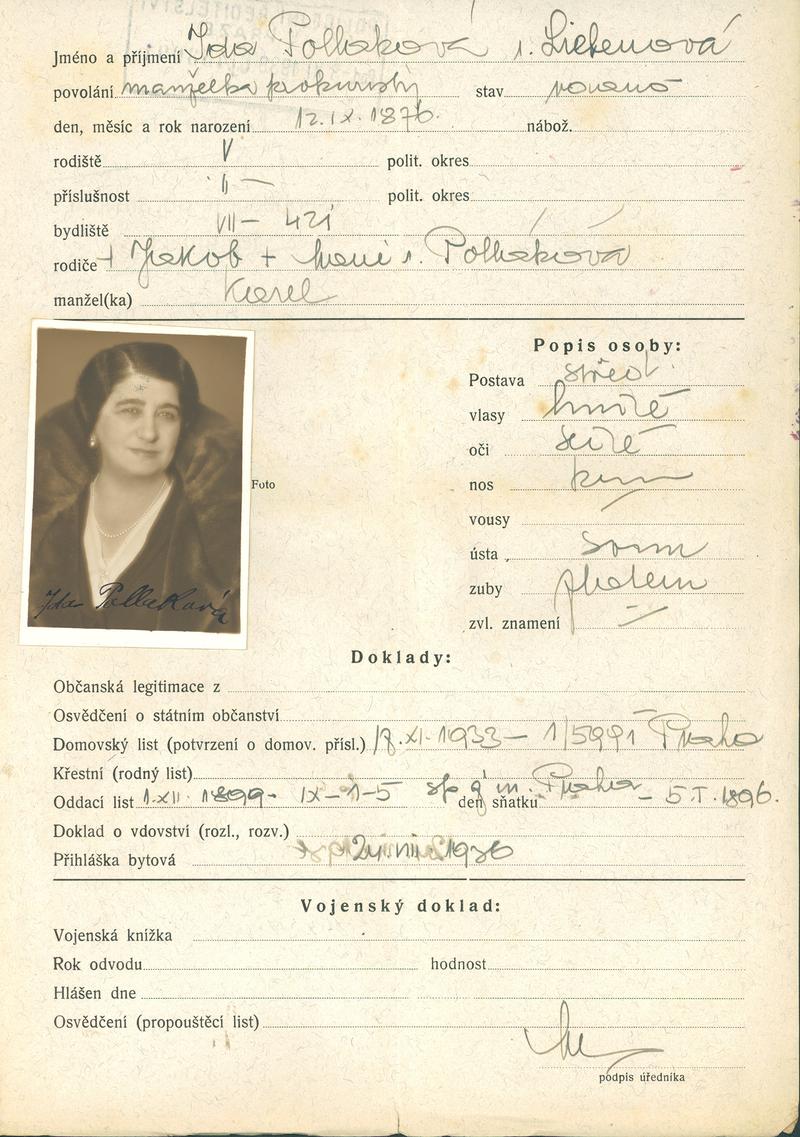 Jméno a příjmení Ida Pollaková r. Liebenová
povolání manželka prokuristy stav
den, měsíc a rok narození 12.IX.1876. nábož.
rodiště V polit. okres
příslušnost " — polit. okres
bydliště VII – 421
rodiče + Jakob + r. Pollaková
manžel(ka) Karel
Popis osoby:
Postava střed.
vlasy hnědé
oči šedé
Foto
nos
vousy
ústa
zuby
zvl. znamení —
Ida Pollaková
Doklady:
Občanská legitimace z
Osvědčení o státním občanství
Domovský list (potvrzení o domov. přísl.) XI. 1933 – 1/5991 Praha
Křestní (rodný list)
Oddací list 1.XII. 1899 – IX–1–5 Praha den sňatku – 5.I.1896.
Doklad o vdovství (rozl., rozv.)
Přihláška bytová 24.VIII.1936
Vojenský doklad:
Vojenská knížka
Rok odvodu hodnost
Hlášen dne
Osvědčení (propouštěcí list)
podpis úředníka